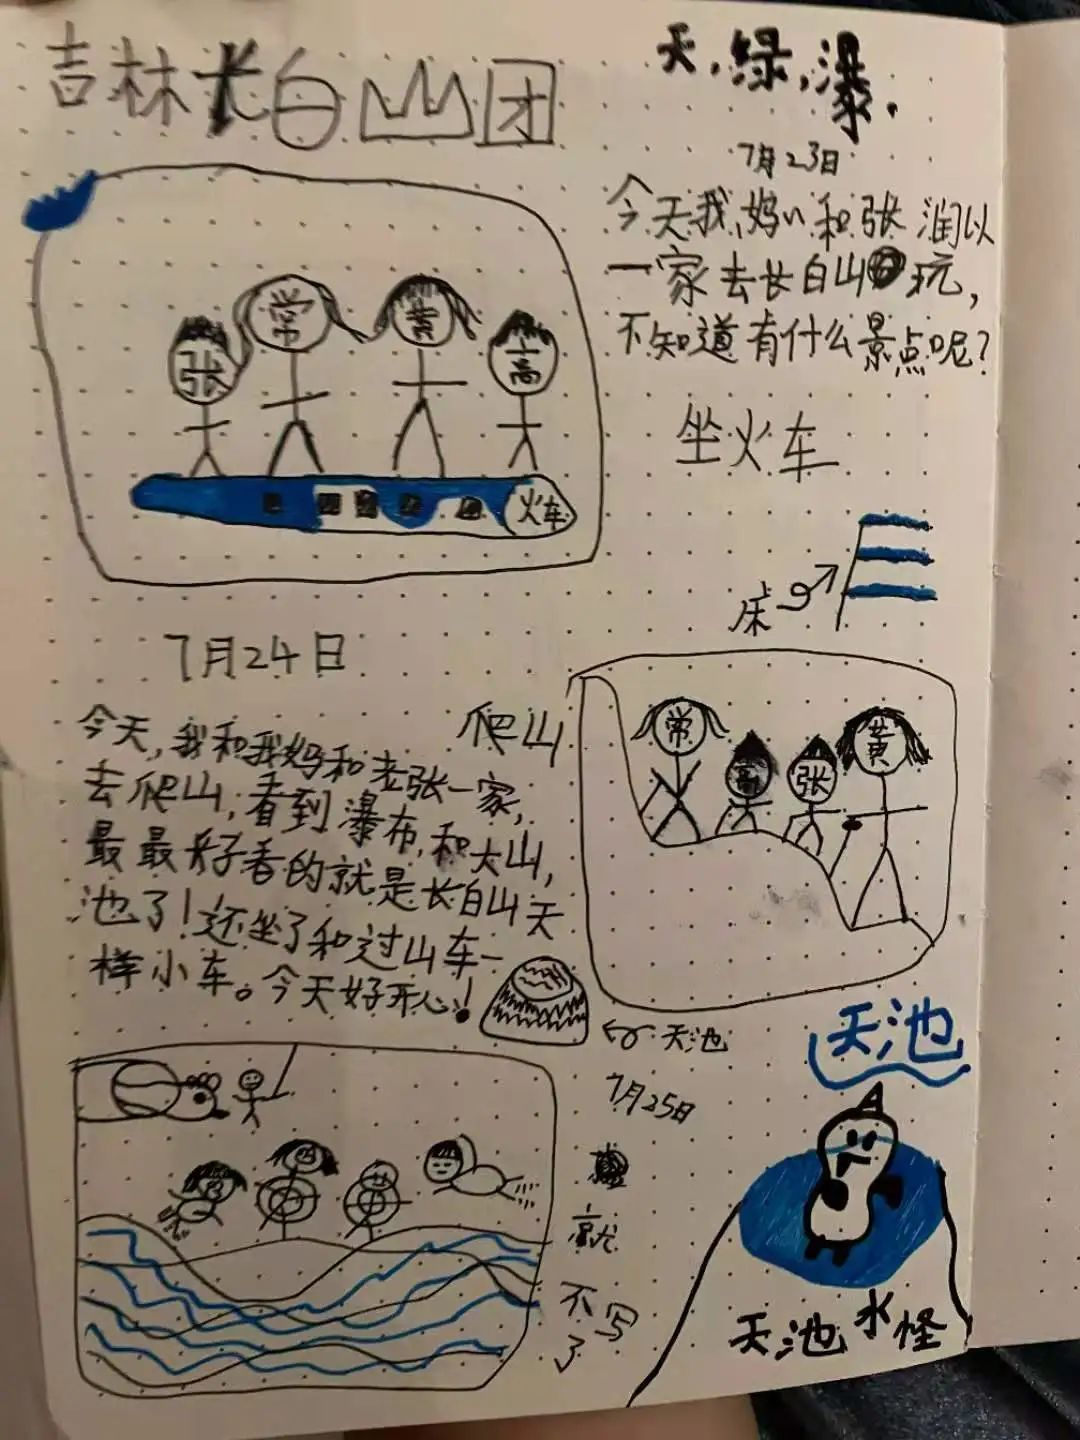 吉林长白山团
天，绿，瀑，
7月23日
今天我妈和张润以
一家去长白山玩，
不知道有什么景点呢？
坐火车
张
常
黄
高
火车
床
7月24日
爬山
今天，我和我妈和老张一家，
去爬山，看到瀑布，和大山，
最最好看的就是长白山天
池了！还坐了和过山车一
样小车。今天好开心！
常
高
张
黄
天池
天池
7月25日
就
不写
了
天池水怪